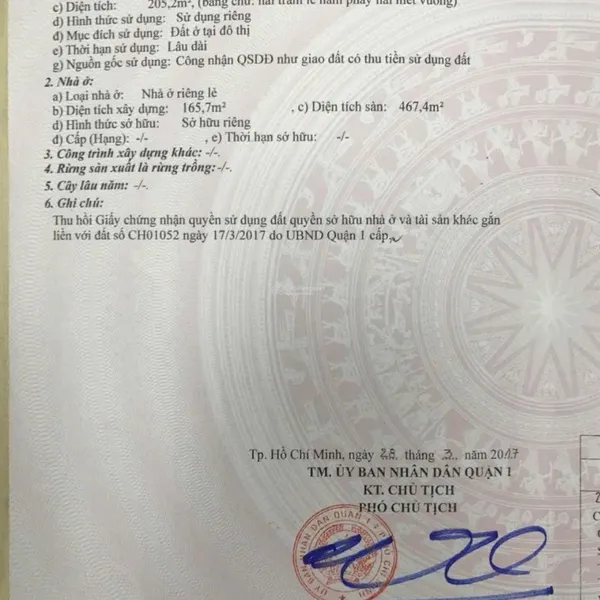 c) Diện tích: 205,2m², (bằng chữ: hai trăm lẻ năm phẩy hai mét vuông)
d) Hình thức sử dụng: Sử dụng riêng
đ) Mục đích sử dụng: Đất ở tại đô thị
e) Thời hạn sử dụng: Lâu dài
g) Nguồn gốc sử dụng: Công nhận QSDĐ như giao đất có thu tiền sử dụng đất
2. Nhà ở:
a) Loại nhà ở: Nhà ở riêng lẻ
b) Diện tích xây dựng: 165,7m² , c) Diện tích sàn: 467,4m²
d) Hình thức sở hữu: Sở hữu riêng
đ) Cấp (Hạng): -/- , e) Thời hạn sở hữu: -/-
3. Công trình xây dựng khác: -/-.
4. Rừng sản xuất là rừng trồng:-/-.
5. Cây lâu năm: -/-.
6. Ghi chú:
Thu hồi Giấy chứng nhận quyền sử dụng đất quyền sở hữu nhà ở và tài sản khác gắn
liền với đất số CH01052 ngày 17/3/2017 do UBND Quận 1 cấp.
Tp. Hồ Chí Minh, ngày 28. tháng .3.. năm 2017
TM. ỦY BAN NHÂN DÂN QUẬN 1
KT. CHỦ TỊCH
PHÓ CHỦ TỊCH